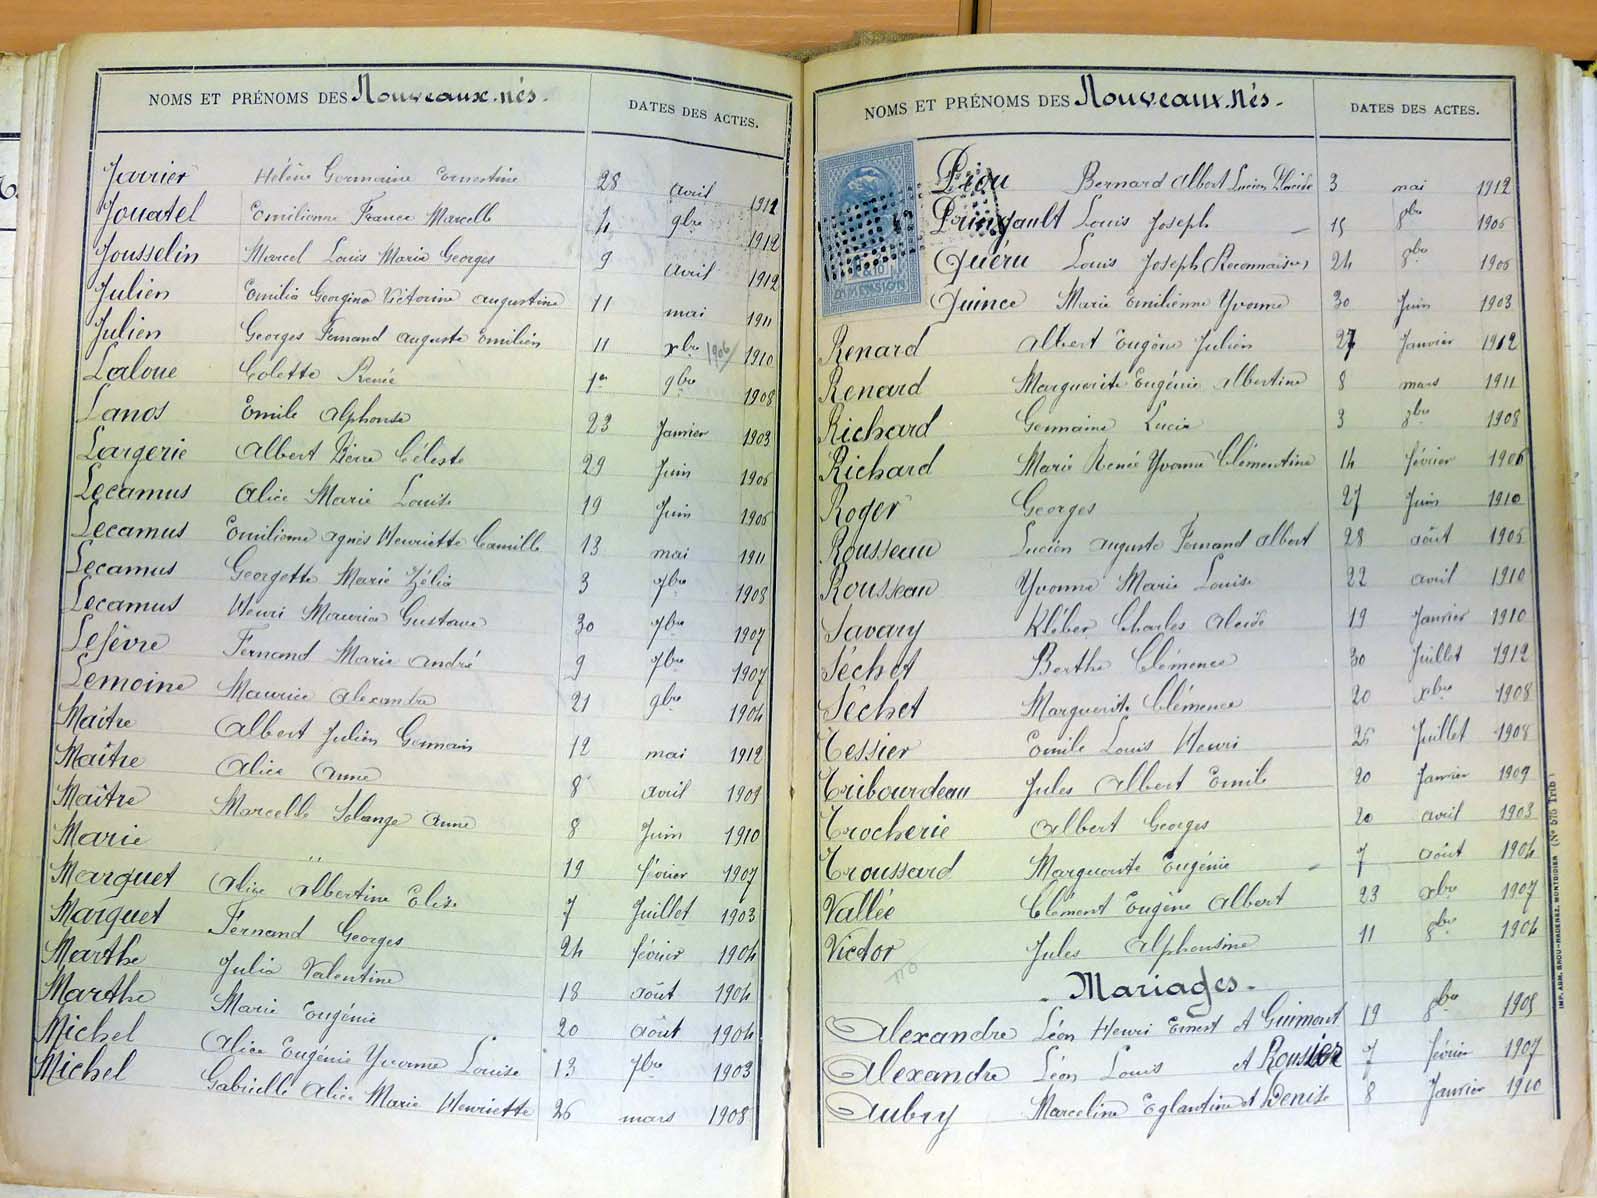 NOMS ET PRÉNOMS DES Nouveaux-nés. DATES DES ACTES.
Javrier Hélène Germaine Ernestine 28 avril 1912
Jouatel Emilienne France Marcelle 4 9bre 1912
Jousselin Marcel Louis Marie Georges 9 avril 1912
Julien Emilia Georgina Victorine Augustine 11 mai 1911
Julien Georges Fernand Auguste Emilien 11 xbre 1906/ 1910
Laloue Colette Renée 1er 9bre 1908
Lanos Emile Alphonse 23 Janvier 1903
Largerie Albert Pierre Céleste 29 Juin 1905
Lecamus Alice Marie Louise 19 Juin 1905
Lecamus Emilienne Agnès Henriette Camille 13 mai 1911
Lecamus Georgette Marie Zélia 3 7bre 1908
Lecamus Henri Maurice Gustave 30 7bre 1907
Lefèvre Fernand Marie André 9 7bre 1907
Lemoine Maurice Alexandre 21 9bre 1904
Maître Albert Julien Germain 12 mai 1912
Maître Alice Anne 8 avril 1909
Maître Marcelle Solange Anne 8 Juin 1910
Marie " 19 février 1907
Marquet Alice Albertine Elise 7 Juillet 1903
Marquet Fernand Georges 24 février 1904
Marthe Julia Valentine 18 août 1904
Marthe Marie Eugénie 20 août 1904
Michel Alice Eugénie Yvonne Louise 13 7bre 1903
Michel Gabrielle Alice Marie Henriette 26 mars 1908
NOMS ET PRÉNOMS DES Nouveaux-nés. DATES DES ACTES.
Priou Bernard Albert Lucien Placide 3 mai 1912
Pringault Louis Joseph 15 8bre 1905
Quéru Louis Joseph (Reconnaisce) 24 8bre 1905
DIMENSION
Quince Marie Emilienne Yvonne 30 Juin 1903
Renard Albert Eugène Julien 27 Janvier 1912
Renard Marguerite Eugénie Albertine 8 mars 1911
Richard Germaine Lucie 3 8bre 1908
Richard Marie Renée Yvonne Clémentine 14 février 1906
Roger Georges 27 Juin 1910
Rousseau Lucien Auguste Fernand Albert 28 août 1905
Rousseau Yvonne Marie Louise 22 avril 1910
Savary Kléber Charles Aloïse 19 Janvier 1910
Séchet Berthe Clémence 30 Juillet 1912
Séchet Marguerite Clémence 20 xbre 1908
Tessier Emile Louis Henri 25 Juillet 1908
Tribourdeau Jules Albert Emile 20 Janvier 1909
Trocherie Albert Georges 20 avril 1903
Troussard Marguerite Eugénie 7 août 1904
Vallée Clément Eugène Albert 23 xbre 1907
Victor Jules Alphonsine 11 8bre 1904
- Mariages -
Alexandre Léon Henri Ernest et Guimont 19 8bre 1905
Alexandre Léon Louis et Rousier 7 février 1907
Aubry Marceline Eglantine et Denise 8 Janvier 1910